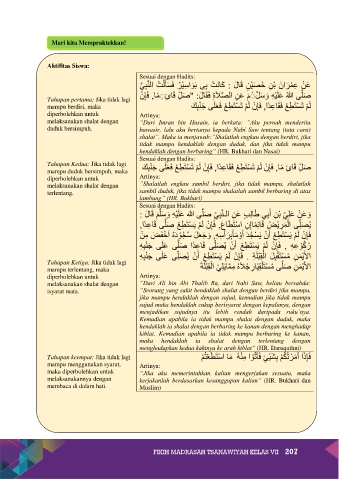 Mari kita Mempraktekkan!
Aktifitas Siswa:
Tahapan pertama: Jika tidak lagi
mampu berdiri, maka
diperbolehkan untuk
melaksanakan shalat dengan
duduk bersimpuh.
Sesuai dengan Hadits:
Artinya:
"Dari Imran bin Husain, ia berkata: "Aku pernah menderita
bawasir, lalu aku bertanya kepada Nabi Saw tentang (tata cara)
shalat". Maka ia menjawab:"Shalatlah engkau dengan berdiri, jika
tidak mampu hendaklah dengan duduk, dan jika tidak mampu
hendaklah dengan berbaring" (HR. Bukhari dan Nasai)
Tahapan Kedua: Jika tidak lagi
mampu duduk bersimpuh, maka
diperbolehkan untuk
melaksanakan shalat dengan
terlentang.
Sesuai dengan Hadits:
Artinya:
"Shalatlah engkau sambil berdiri, jika tidak mampu, shalatlah
sambil duduk, jika tidak mampu shalatlah sambil berbaring di atas
lambung" (HR. Bukhari)
Tahapan Ketiga: Jika tidak lagi
mampu terlentang, maka
diperbolehkan untuk
melaksanakan shalat dengan
isyarat mata.
Sesuai dengan Hadits:
Artinya:
"Dari Ali bin Abi Thalib Ra, dari Nabi Saw, beliau bersabda:
"Seorang yang sakit hendaklah shalat dengan berdiri jika mampu,
jika mampu hendaklah dengan sujud, kemudian jika tidak mampu
sujud maka hendaklah cukup berisyarat dengan kepalanya, dengan
menjadikan sujudnya itu lebih rendah daripada ruku'nya.
Kemudian apabila ia tidak mampu shalat dengan duduk, maka
hendaklah ia shalat dengan berbaring ke kanan dengan menghadap
kiblat. Kemudian apabila ia tidak mampu berbaring ke kanan,
maka hendaklah ia shalat dengan terlentang dengan
menghadapkan kedua kakinya ke arah kiblat" (HR. Daruquthni)
Tahapan keempat: Jika tidak lagi
mampu menggunakan syarat,
maka diperbolehkan untuk
melaksanakannya dengan
membaca di dalam hati.
فَإِذَا أَمَرْتُكُمْ بِشَيْئٍ فَأْتُوْا مِنْهُ مَا اسْتَطَعْتُمْ
Artinya:
"Jika aku memerintahkan kalian mengerjakan sesuatu, maka
kerjakanlah berdasarkan kesanggupan kalian" (HR. Bukhari dan
Muslim)
FIKIH MADRASAH TSANAWIYAH KELAS VII 207